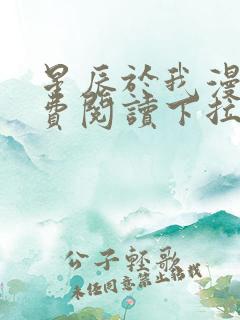 星辰於我漫
費閱讀下拉
公子輕歌
未經同意禁止轉載